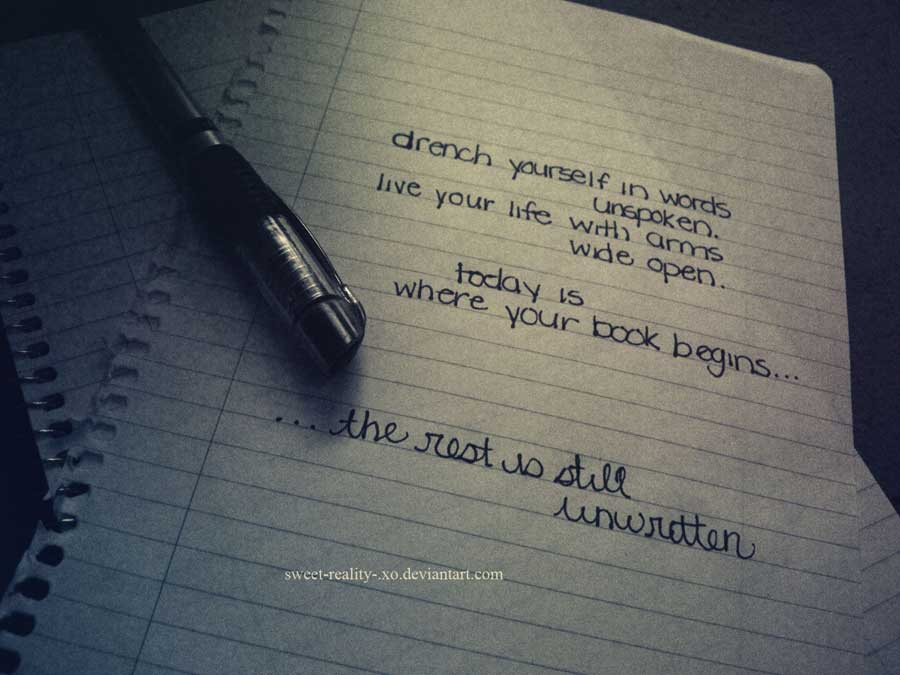 drench yourself in words
unspoken.
live your life with arms
wide open.
today is
where your book begins...
... the rest is still
unwritten
sweet-reality-.xo.deviantart.com